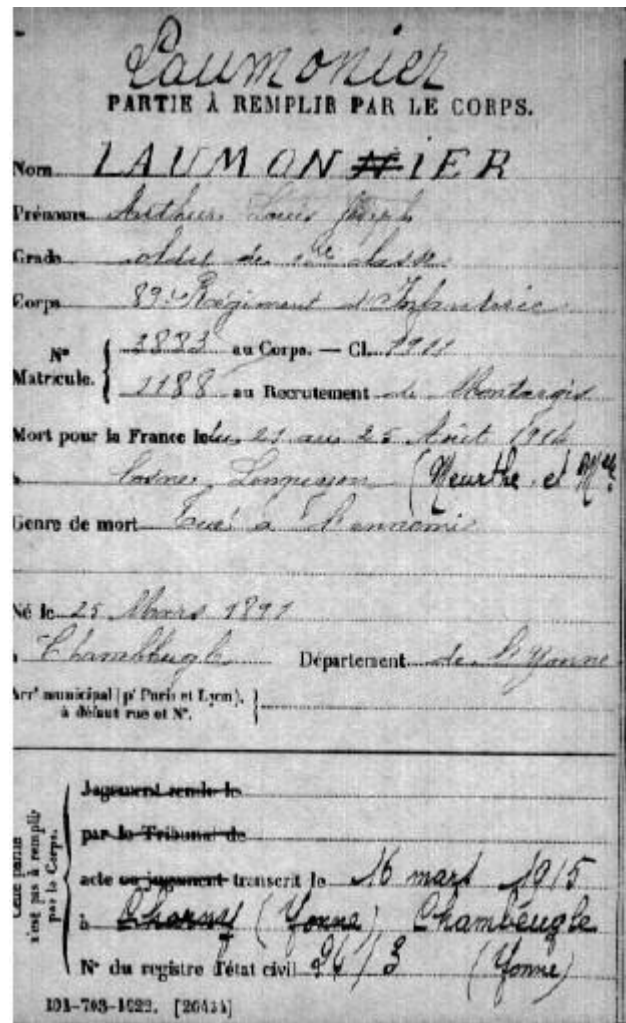 Laumonier
PARTIE À REMPLIR PAR LE CORPS.
Nom LAUMONNIER
Prénoms Arthur Louis Joseph
Grade soldat de classe
Corps 89e Régiment d'Infanterie
N° Matricule. { 3883 au Corps. — Cl. 1911
1188 au Recrutement de Montargis
Mort pour la France le du 21 au 25 Août 1914
à Cosnes Longuyon (Meurthe et Mlle
Genre de mort Tué à l'ennemi
Né le 25 Mars 1891
à Chambeugle Département de l'Yonne
Arrt municipal (pr Paris et Lyon),
à défaut rue et N°.
Cette partie
n'est pas à remplir
par le Corps.
Jugement rendu le
par le Tribunal de
acte ou jugement transcrit le 16 mars 1915
à Charny (Yonne) Chambeugle
N° du registre d'état civil (Yonne)
101-708-1922. [26434]